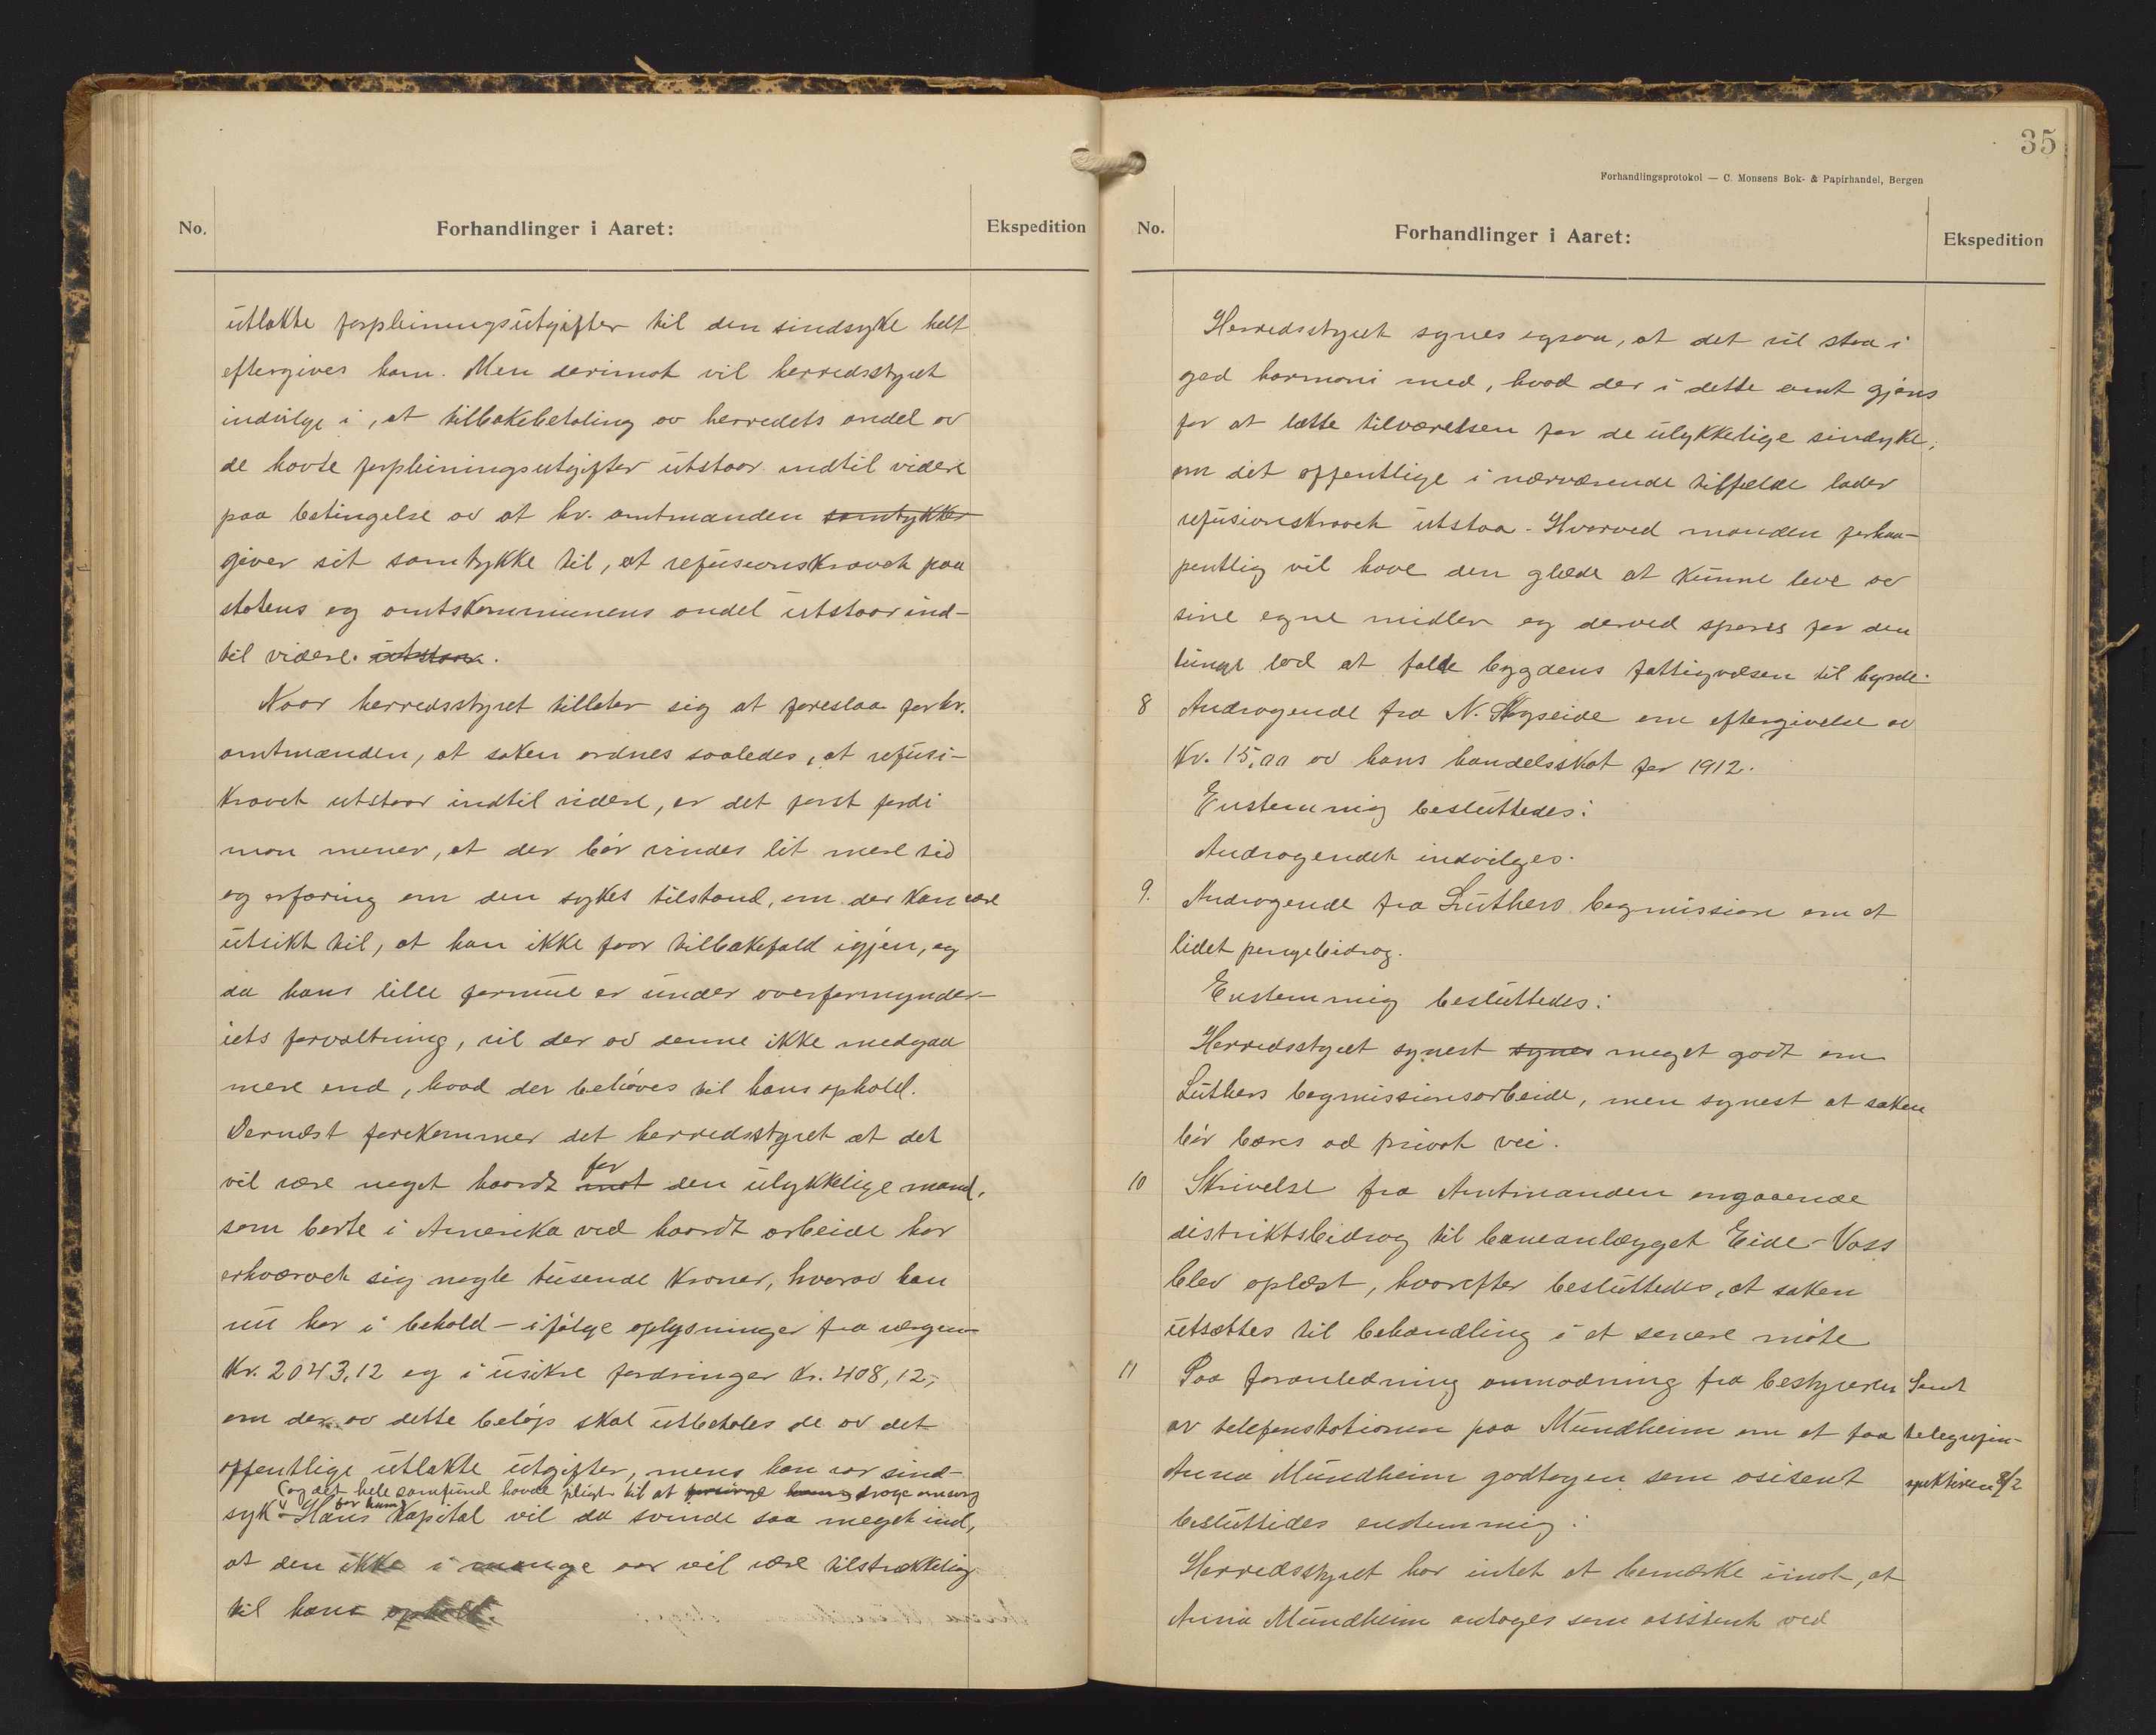 No.
Forhandlinger i Aaret:
Ekspedition
utlakte forpleiningsutgifter til den sindsyke helt
eftergives ham. Men derimot vil herredsstyret
indvilge i, at tilbakebetaling av herredets andel av
de havte forpleiningsutgifter utstaar indtil videre
paa betingelse av at hr. amtmanden samtykker
giver sit samtykke til, at refusionskravet paa
statens og amtskommunens andel utstaar ind-
til videre. utstaar.
Naar herredsstyret tillater sig at foreslaa for hr.
amtmanden, at saken ordnes saaledes, at refusi-
kravet utstaar indtil videre, er det først fordi
man mener, at der bør vindes lit mere tid
og erfaring om den sykes tilstand, om der kan være
utsikt til, at han ikke faar tilbakefald igjen, og
da hans lille formue er under overformynder-
iets forvaltning, vil der av denne ikke medgaa
mere end, hvad der behøves til hans ophold.
Dernæst forekommer det herredsstyret at det
vil være noget haardt mot for den ulykkelige mand,
som borte i Amerika ved haardt arbeide har
erhvervet sig nogle tusende kroner, hvorav han
nu har i behold - ifølge oplysninger fra værgen -
Kr. 2043,12 og i usikre fordringer kr. 408,12,-
om der av dette beløp skal utbetales de av det
offentlige utlakte utgifter, mens han var sind-
(og det hele samfund havde pligt til at forsørge ham drage omsorg
for ham)
syk - Hans Kapital vil da svinde saa meget ind,
at den ikke i mange aar vil være tilstrækkelig
til hans ophold.
35
Forhandlingsprotokol — C. Monsens Bok- & Papirhandel, Bergen
No.
Forhandlinger i Aaret:
Ekspedition
Herredsstyret synes ogsaa, at det vil staa i
god harmoni med, hvad der i dette amt gjøres
for at lette tilværelsen for de ulykkelige sindsyke,
om det offentlige i nærværende tilfælde lader
refusionskravet utstaa. Hvorved manden forhaa-
pentlig vil have den glæde at kunne leve av
sine egne midler og derved spares for den
tunge lod at falde bygdens fattigvæsen til byrde.
8 Andragende fra N. Skogseide om eftergivelse av
Kr. 15,00 av hans handelsskat for 1912.
Enstemmig besluttedes:
Andragendet indvilges.
9. Andragende fra Luthers bogmission om et
lidet pengebidrag.
Enstemmig besluttedes:
Herredsstyret synest synes meget godt om
Luthers bogmissionsarbeide, men synest at saken
bør bæres ad privat vei.
10 Skrivelse fra Amtmanden angaaende
distriktsbidrag til baneanlægget Eide-Voss
blev oplæst, hvorefter besluttedes, at saken
utsættes til behandling i et senere møte
11 Paa foranledning anmodning fra bestyreren
Sent
av telefonstationen paa Mundheim om at faa
telegrafin-
Anna Mundheim godtagen som asisent
spektøren 8/2
besluttides enstemmig:
Herredsstyret har intet at bemerke imot, at
Anna Mundheim antages som assistent ved